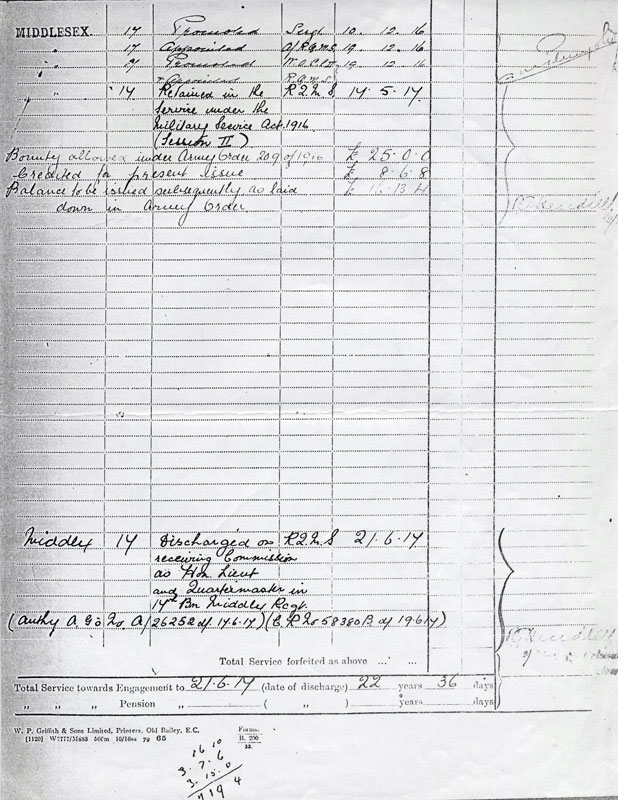 MIDDLESEX. 17 Promoted Sergt 10. 12. 16
" 17 Appointed A/R.Q.M.S 19. 12. 16
" 17 Promoted W.O.Cl II 19. 12. 16
& Appointed R.Q.M.S
" 17 Retained in the R.Q.M.S 14. 5. 17
Service under the
Military Service Act. 1916
(Session II)
Bounty allowed under Army Order 209 of 1916 £ 25.0.0
Credited for present issue £ 8.6.8
Balance to be issued subsequently as laid £ 16.13.4
down in Army Order
Middlex 17 Discharged on R.Q.M.S 21.6.17
receiving Commission
as Hon. Lieut
and Quartermaster in
17th Bn Middlex Regt.
Total Service forfeited as above ... ...
Total Service towards Engagement to 21.6.17 (date of discharge) 22 years 36 days
" " " Pension " ( " ) " "
W. P. Griffith & Sons Limited, Printers, Old Bailey, E.C.
[1120] W7777/M883 500m 10/16ss 79 65
Forms.
B. 200
16 10
3. 7. 6
3. 15. 0
19 4